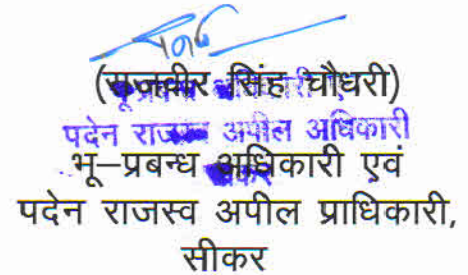 (राजवीर सिंह चौधरी)
पदेन राजस्व अपील अधिकारी
भू–प्रबन्ध अधिकारी एवं
पदेन राजस्व अपील प्राधिकारी,
सीकर